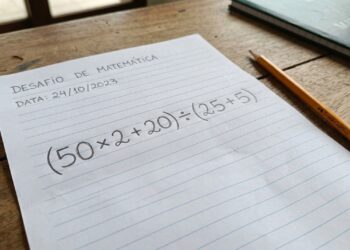 DESAFÍO DE MATEMÁTICA
DATA: 24/10/2023
(50×2+20)÷(25+5)